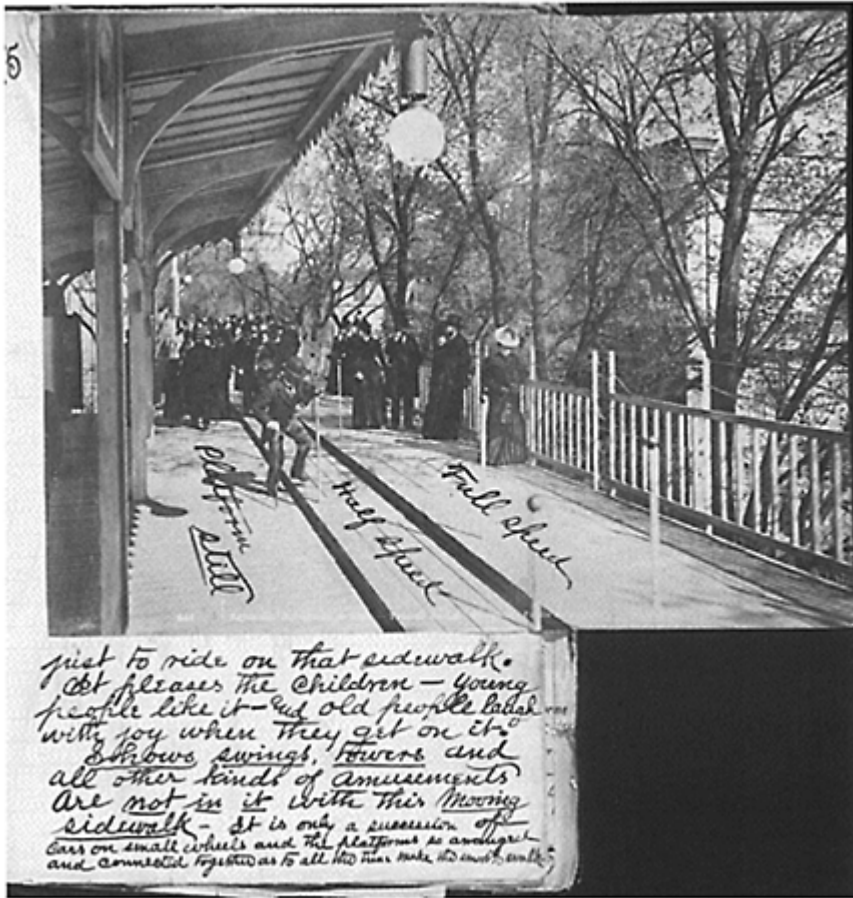 5
Platform
still
Half speed
Full speed
just to ride on that sidewalk.
It pleases the children — young
people like it — and old people laugh
with joy when they get on it.
Shows swings, towers and
all other kinds of amusements
are not in it with this moving
sidewalk — It is only a succession of
Cars on small wheels and the platforms so arranged
and connected together as to all the time make the walk